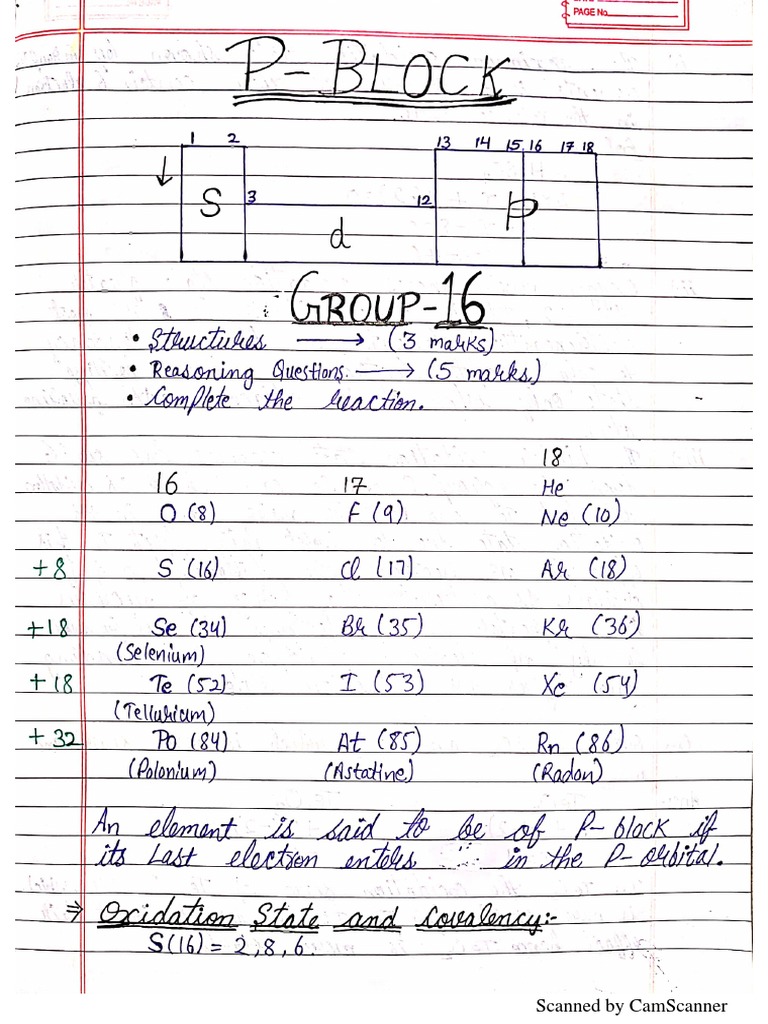 PAGE No.
P-BLOCK
1 2 13 14 15 16 17 18
S 3 12 P
d
GROUP-16
• Structures → (3 marks)
• Reasoning Questions → (5 marks)
• Complete the reaction.
18
16 17 He
O (8) F (9) Ne (10)
+8 S (16) Cl (17) Ar (18)
+18 Se (34) Br (35) Kr (36)
(Selenium)
+18 Te (52) I (53) Xe (54)
(Tellurium)
+32 Po (84) At (85) Rn (86)
(Polonium) (Astatine) (Radon)
An element is said to be of P-block if
its Last electron enters in the P-orbital.
⇒ Oxidation State and Covalency:-
S(16) = 2,8,6.
Scanned by CamScanner